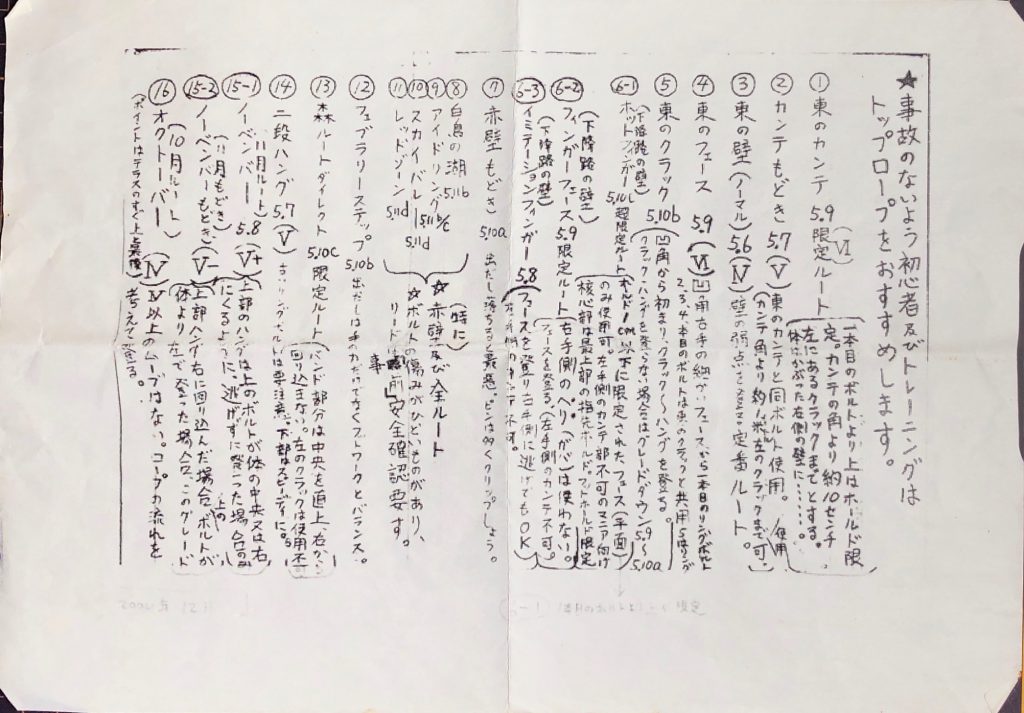 ★事故のないよう初心者及びトレーニングは
トップロープをおすすめします。
① 東のカンテ 5.9 限定ルート
(Ⅵ)
一本目のボルトより上はホールド限
定、カンテの角より約10センチ
左にあるクラックまでとする。
体はかぶった右側の壁に……
② カンテもどき 5.7 (Ⅴ) 東のカンテと同ボルト使用。
(カンテ角より約1米左のクラックまで可)
使用
③ 東の壁(ノーマル) 5.6 (Ⅳ) 壁の弱点 定番ルート。
④ 東のフェース 5.9 (Ⅵ) 凹角右手の細かいフェース、から一本目のリングボルト
2、3、4、本目のボルトは東のクラックと共用
⑤ 東のクラック 5.10b 凹角から初まり、クラック〜ハングを登る。
クラックハングを登らない場合はグレードダウン 5.9〜5.10a
⑥-1 (下降路の壁)
ホットフィンガー 5.10c 超限定ルート
1cm以下に限定された、フェース(平面)
のみ使用可。左手側のカンテ部不可のマニア向け
核心部は最上部の指先ホールド、フットホールド限定
⑥-2 (下降路の壁)
フィンガーフェース 5.9 限定ルート 右手側のへり(ガバ)は使わない。
フェースを登る、(左手側のカンテ不可。)
⑥-3 (下降路の壁)
イミテーションフィンガー 5.8 フェースを登り右手側に逃げてもOK
⑦ 赤壁もどき 5.10a 出だし落ちると最悪。ビレイは早くクリップしよう。
⑧ 白鳥の湖 5.11b
⑨ アイドリング 5.11b/c
⑩ スカイバレー 5.11d
⑪ レッドゾーン 5.11d
(特に)
★赤壁及び全ルート
★ボルトの傷みがひどいものがあり、
リード 事前『安全確認要す。
⑫ フェブラリーステップ 5.10b 出だしは手の力だけでなくフットワークとバランス。
⑬ 森ルートダイレクト 5.10c 限定ルート
バンド部分は中央を直上、右から
回り込まない。左のクラックは使用不可
⑭ 二段ハング 5.7 (Ⅴ) リングボルトは要注意。下部はスピーディに。
⑮-1 (11月ルート)
ノーベンバー 5.8 (Ⅴ+) 上部のハングは上のボルトが体の中央又は右
にくるように、逃げずに登った場合のみ
⑮-2 (11月もどき)
ノーベンバーもどき (Ⅴ-) 上部ハング右に回り込んだ場合、ボルトが
体より左で登った場合、このグレード
上の
⑯ (10月ルート)
オクトーバー (Ⅳ) Ⅳ以上のムーブはない。ロープの流れを
考えて登る。
(ポイントはテラスのすぐ上と最後)
⑥-1 1本目のボルト 限定